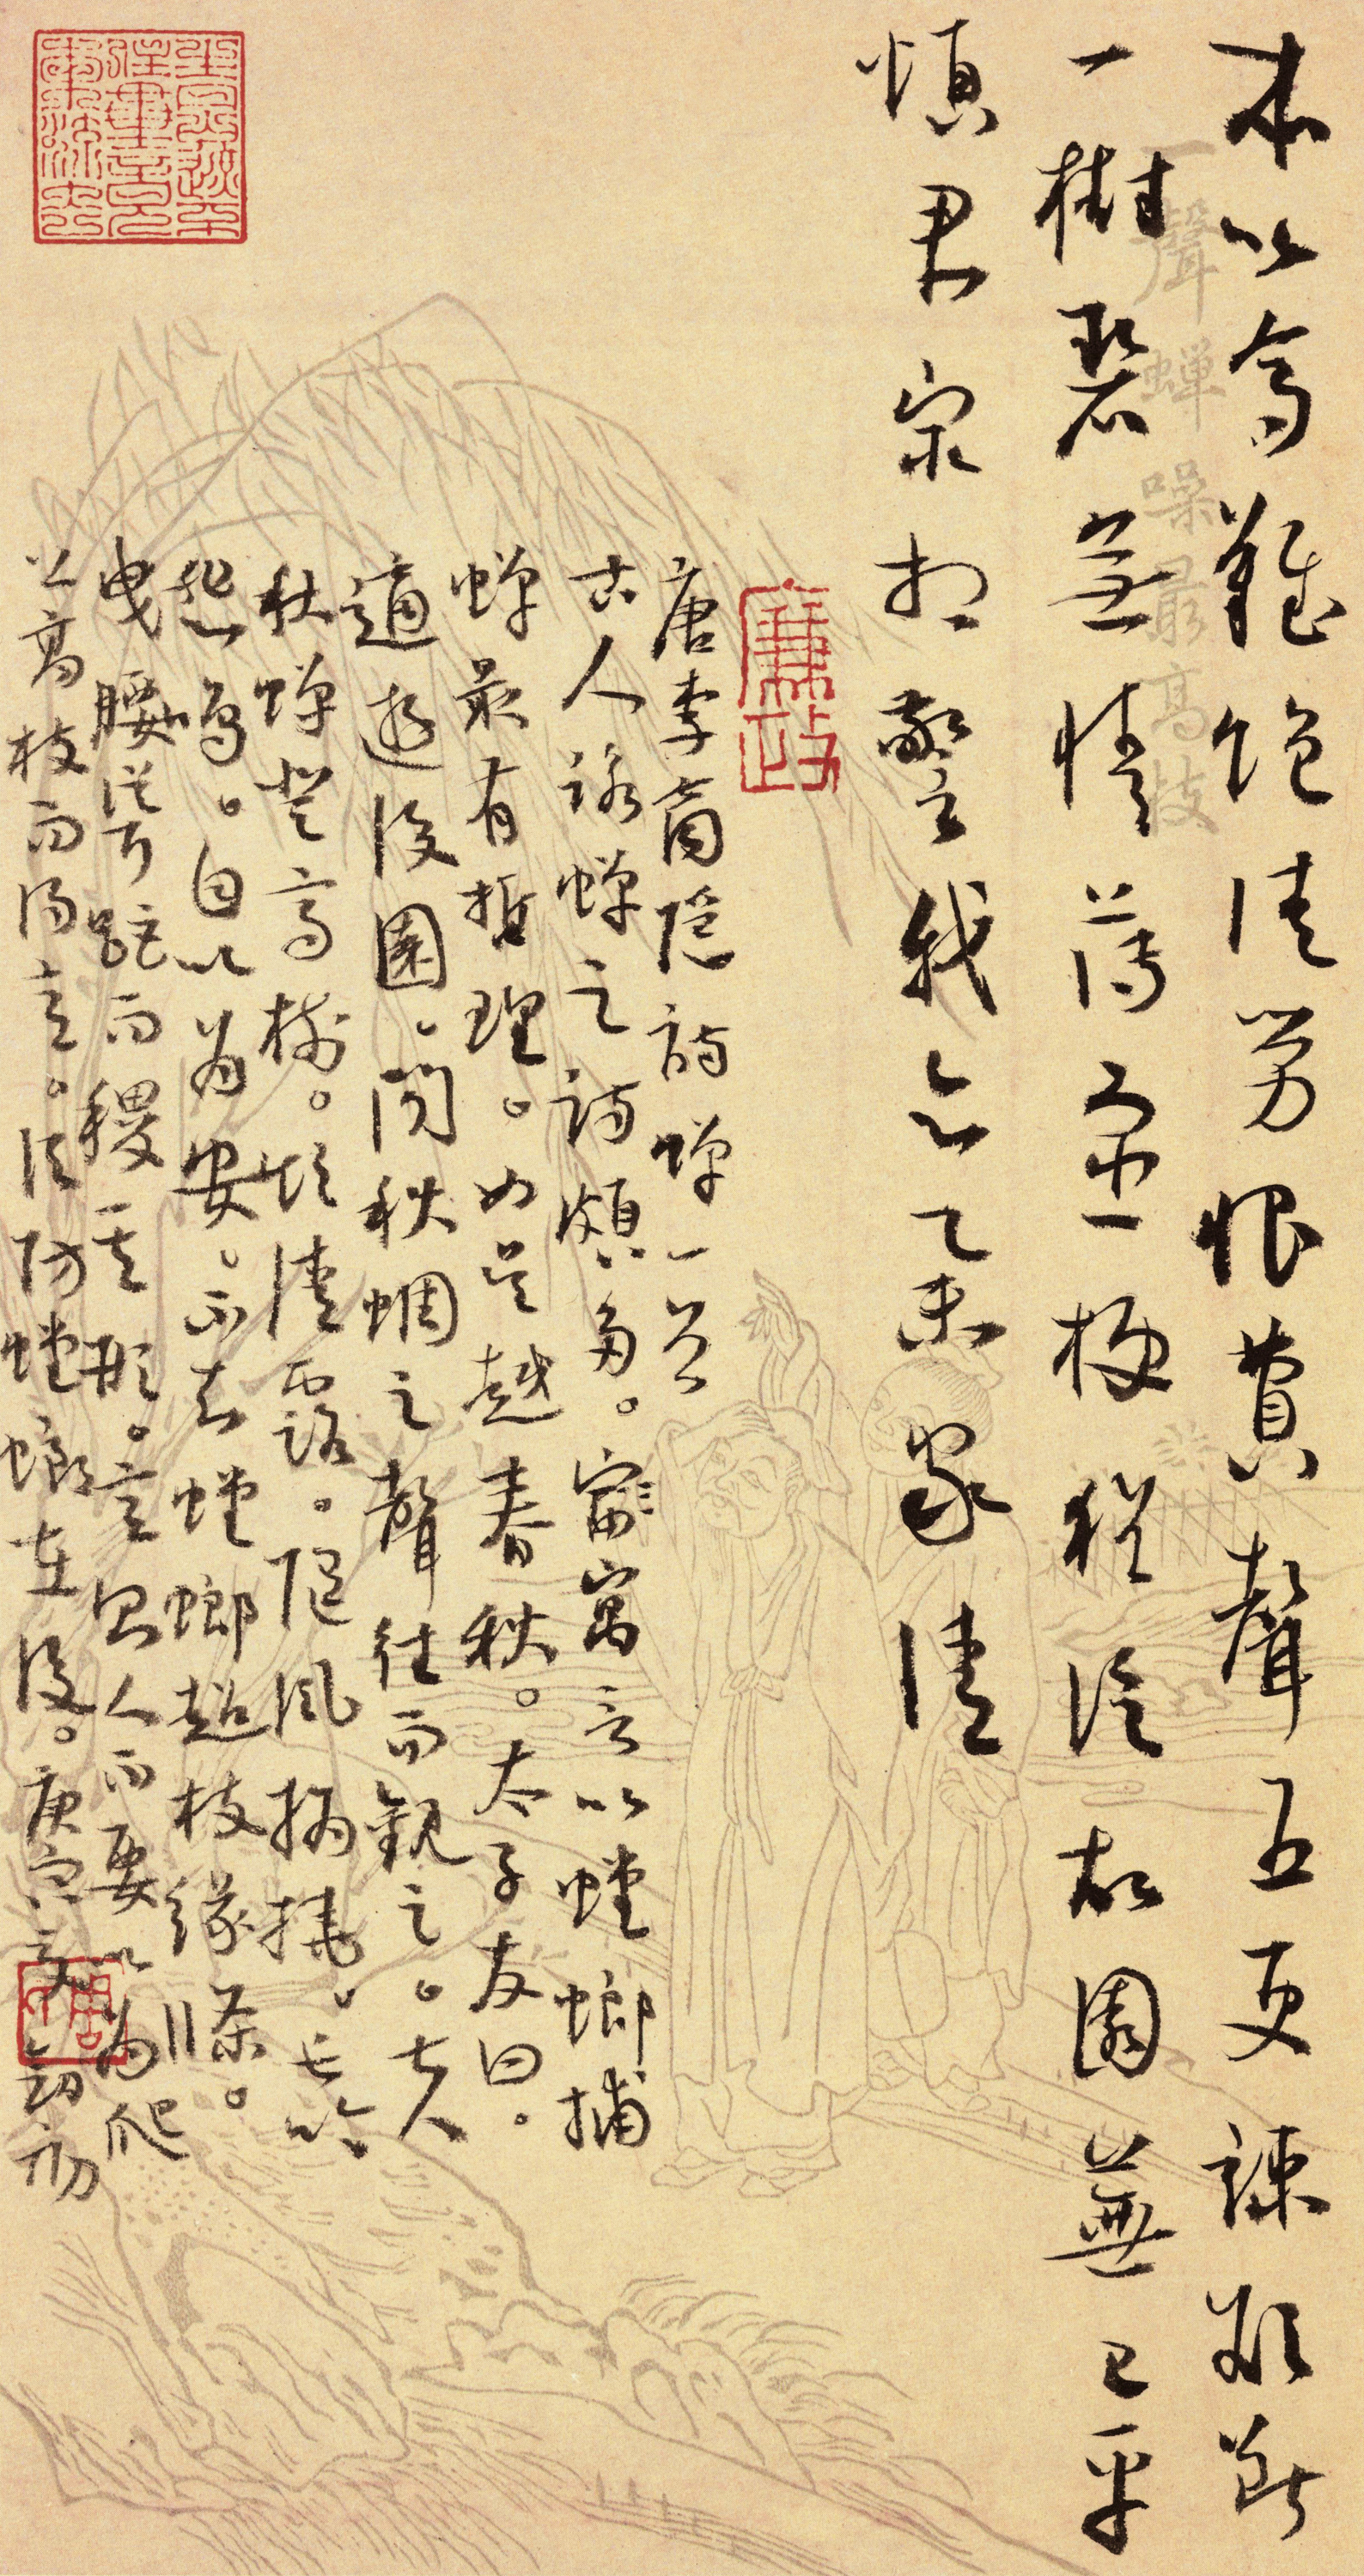 本以高難飽清勞恨費聲五更疎欲斷
一聲蟬噪最高枝
一樹碧無情薄宦梗猶泛故園蕪已平
煩君最相警我亦舉家清
廉政
唐李商隱詩蟬一首
古人詠蟬之詩頗多。寓言以螳螂捕
蟬最有哲理。如吳越春秋。太子友曰。
適遊後園、聞秋蜩之聲往而觀之。夫
秋蟬登高樹。飲清露。隨風撝撓、長吟
悲鳴。自以為安。不知螳螂超枝緣條。
曳腰聳距而稷其形。言人而要以為爬
上高枝而得意。須防螳螂在後。庚寅